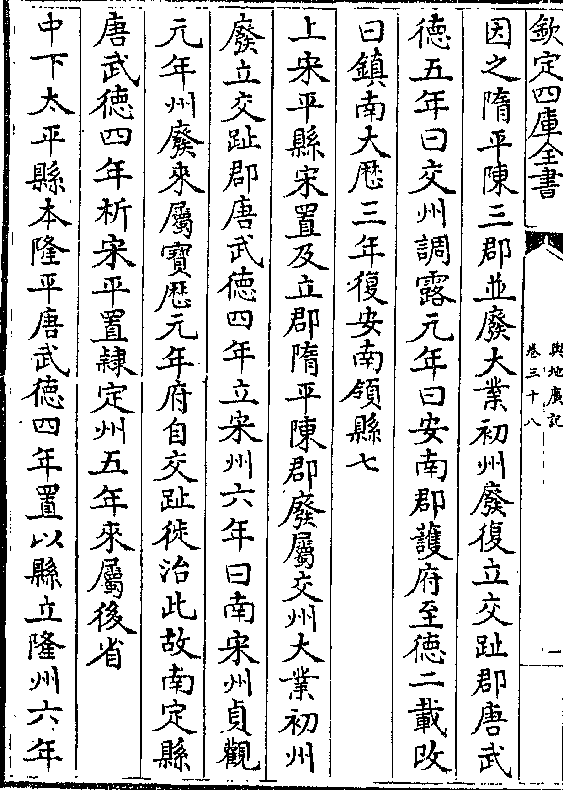 欽定四庫全書
輿地廣記
卷三十八
一
因之隋平陳三郡並廢大業初州廢復立交趾郡唐武
德五年曰交州調露元年曰安南郡護府至德二載改
曰鎮南大厯三年復安南領縣七
上宋平縣宋置及立郡隋平陳郡廢屬交州大業初州
廢立交趾郡唐武德四年立宋州六年曰南宋州貞觀
元年州廢來屬寶厯元年府自交趾徙治此故南定縣
唐武德四年析宋平置隸定州五年來屬後省
中下太平縣本隆平唐武德四年置以縣立隆州六年